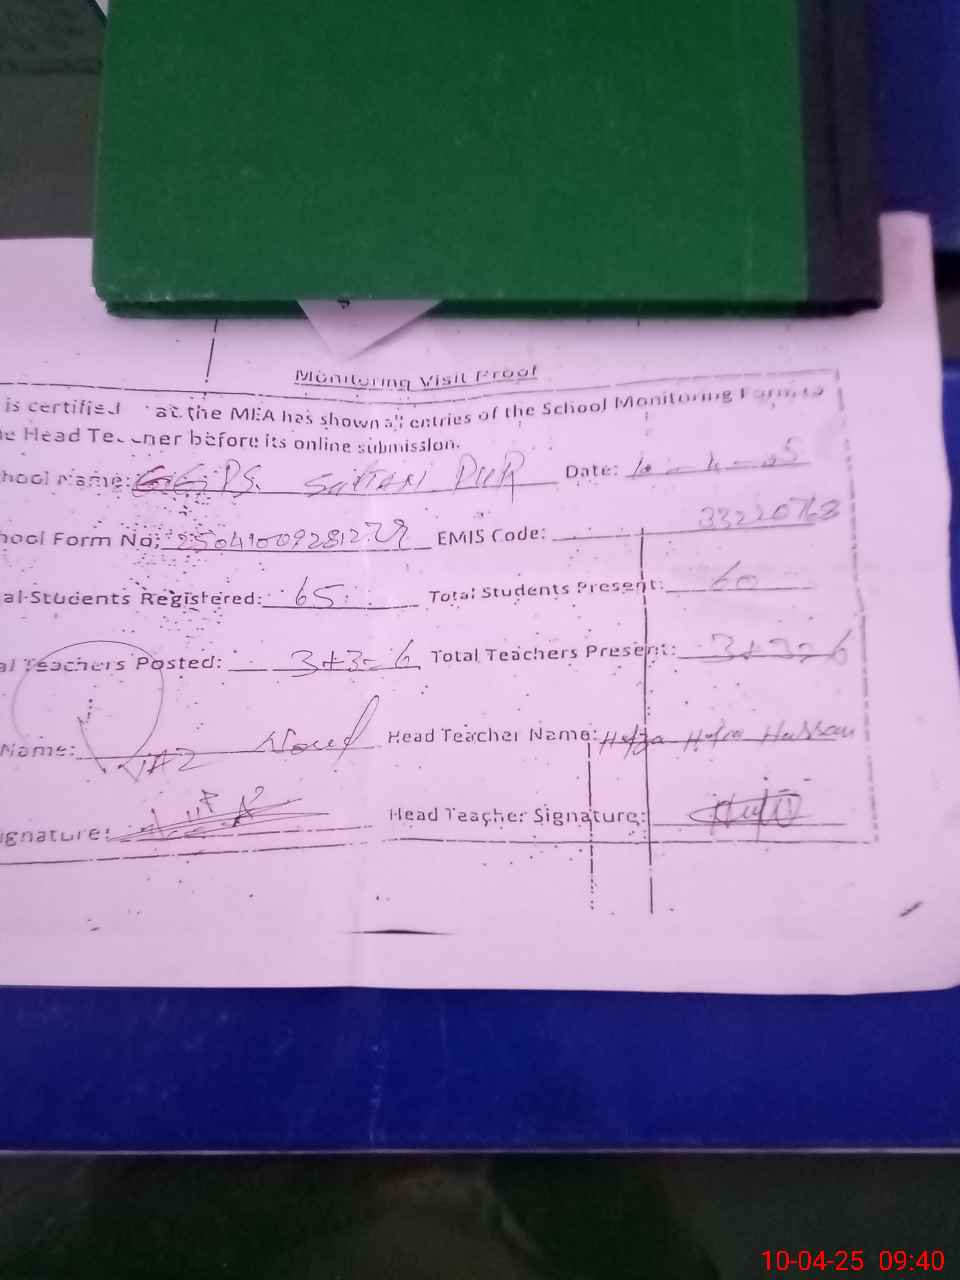 Monitoring Visit Proof
is certified at the MEA has shown all entries of the School Monitoring Form to
Head Teacher before its online submission.
hool Name: GGPS. PUR Date: 10-4-
hool Form No: EMIS Code: 33220768
al Students Registered: 65 Total Students Present: 60
al Teachers Posted: 3+3=6 Total Teachers Present: 3+3=6
Name: Head Teacher Name: Hassan
ignature: Head Teacher Signature:
10-04-25 09:40